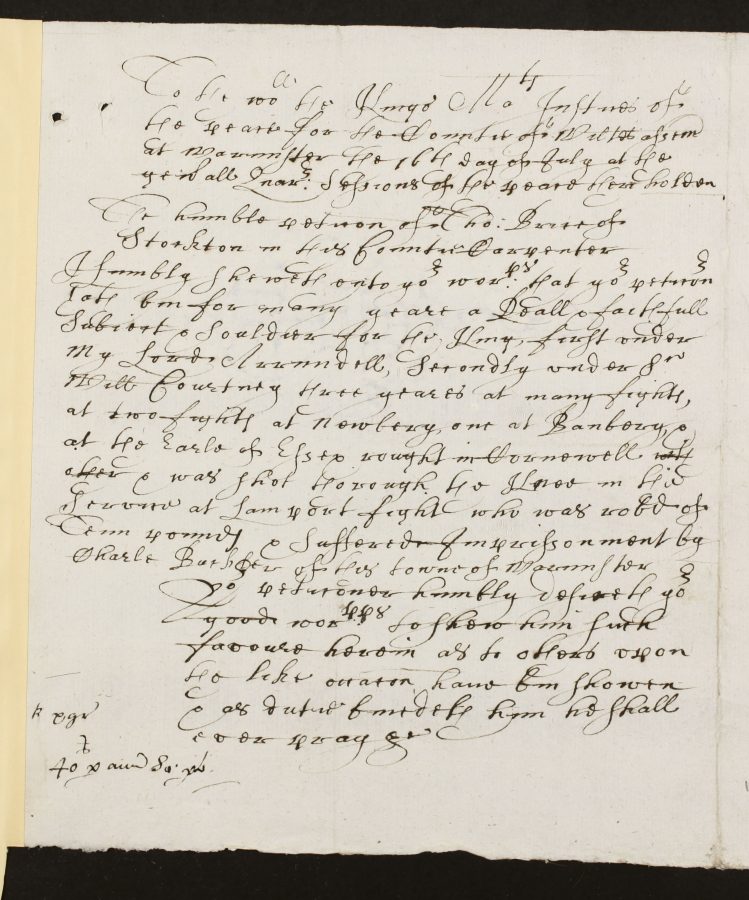 To the woll the Kings Maties Justices of
the peace for the Countie of Wiltes assem
at Warmister the 16th day of July at the
genrall Quar: Sessions of the peace there holden
The humble peticon of Tho: Brice of
Stockton in this Countie Carpenter
Humbly sheweth unto yor worps: that yor peticon
hath bin for many yeare a Reall & faithfull
Subiect & Souldier for the King, first under
My Lord Arrundell, Secondly under Sr
Will Courtney three yeares at many fights,
at two fights at Newbery, one at Banbery, &
at the Earle of Essex rought in Cornewell with
other & was shot thorough the Knee in this
Service at Lamport fight who was robd of
Tenn pounds & suffered Imprissonment by
Charle Bucher of this towne of Warmister
Yor peticoner humbly desireth yor
good worpps to shew him such
favoure herein as to others upon
the like occacon have bin showen
& as dutie bindeth him he shall
ever pray &c
40 p ann